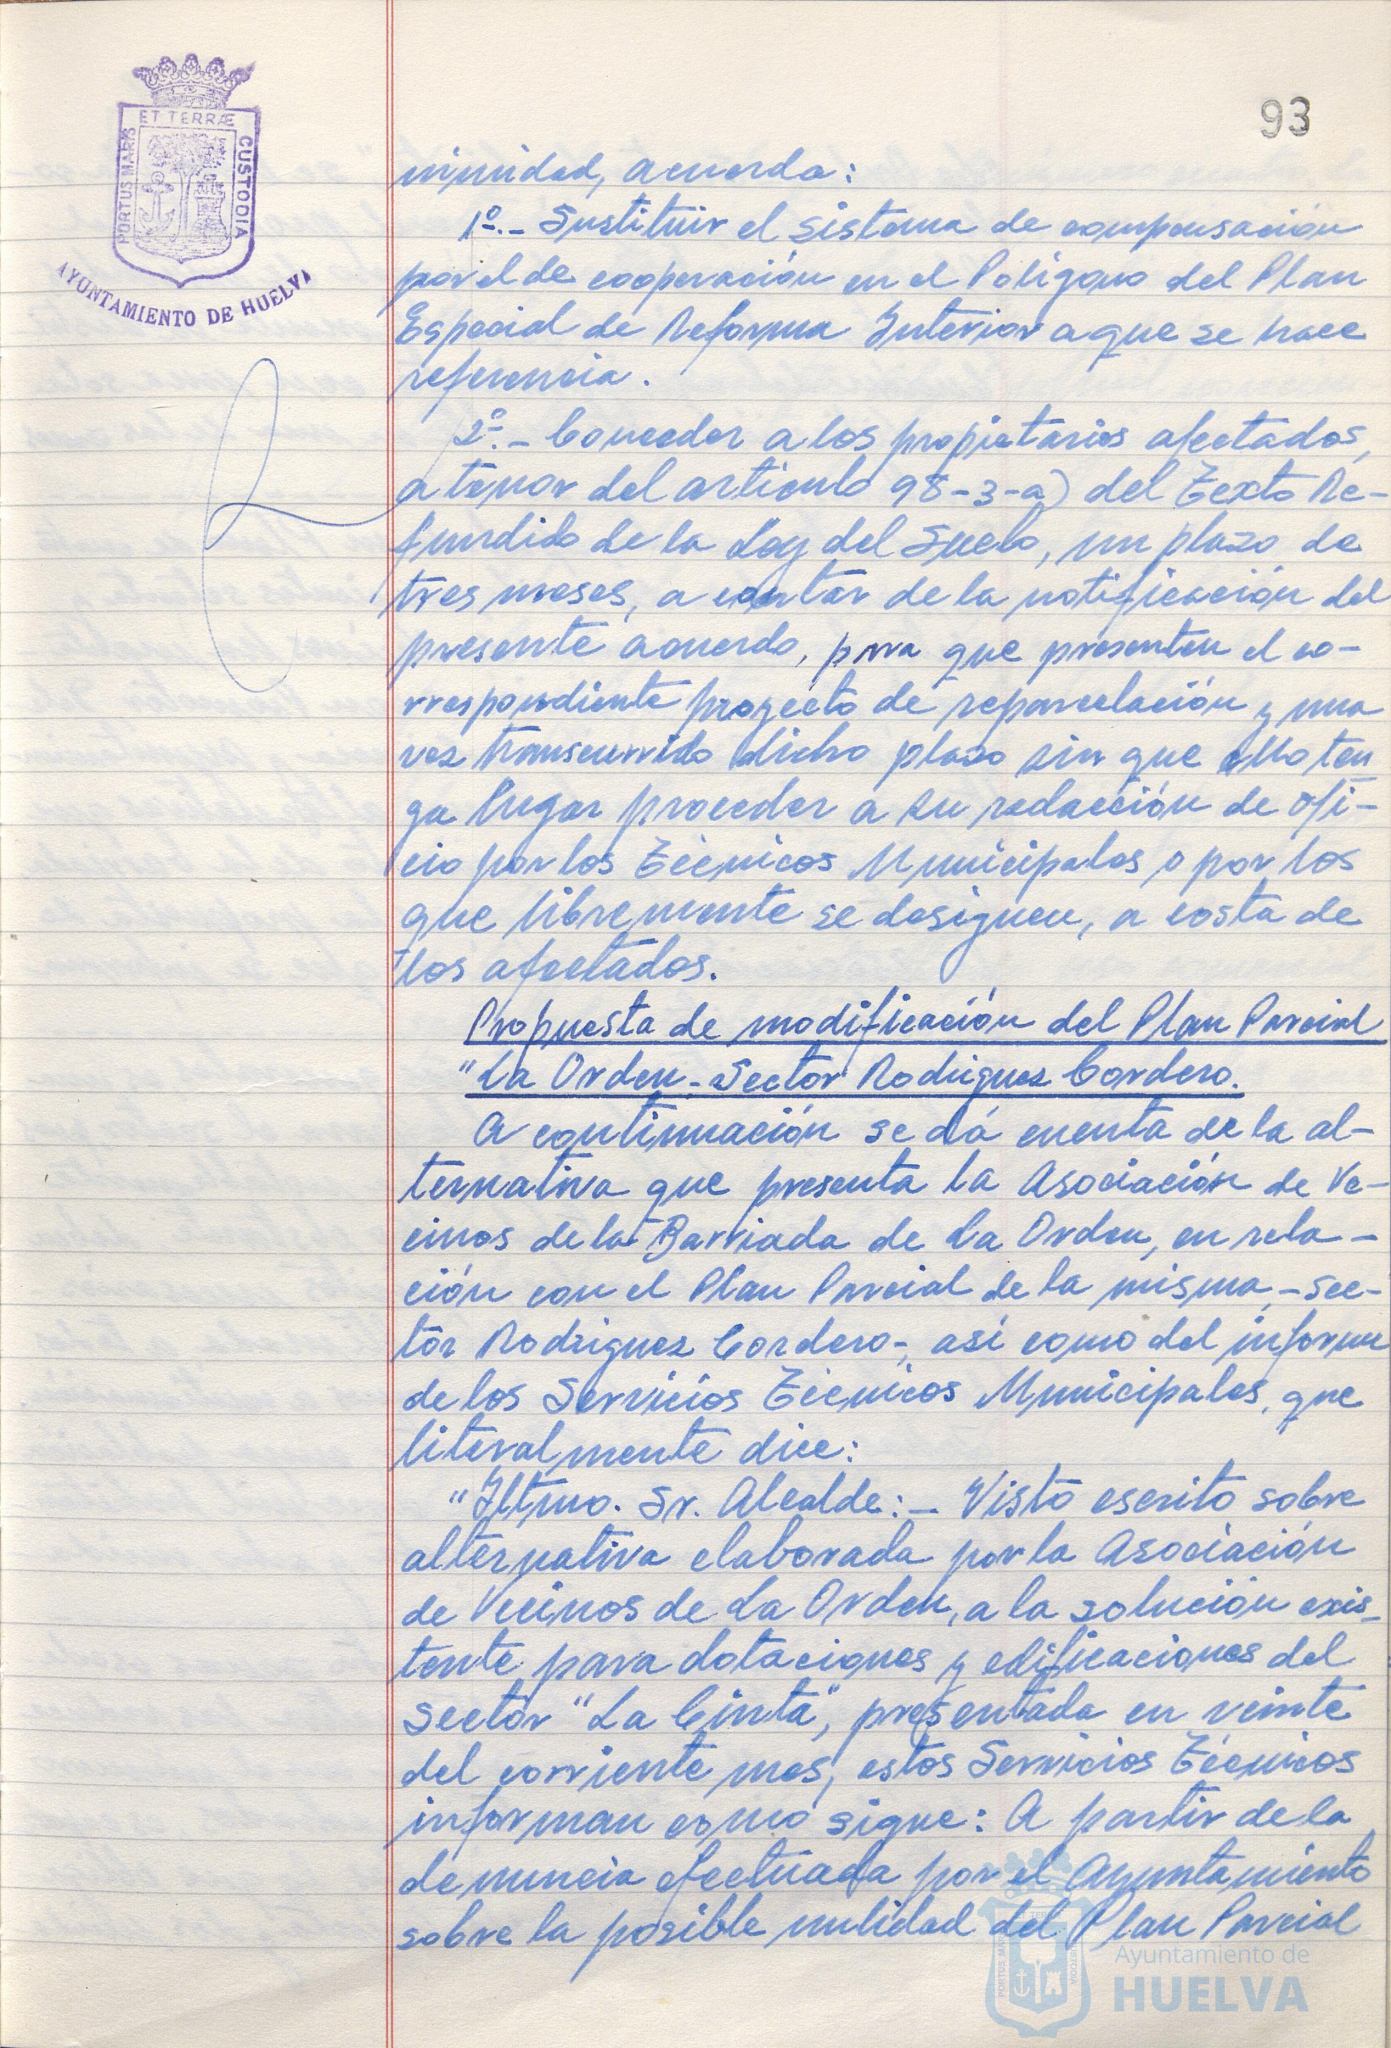 93
ET TERRÆ
PORTUS MARIS
CUSTODIA
AYUNTAMIENTO DE HUELVA
nimidad, acuerda:
1º.- Sustituir el sistema de compensación
por el de cooperación en el Polígono del Plan
Especial de Reforma Interior a que se hace
referencia.
2º.- Conceder a los propietarios afectados,
a tenor del artículo 98-3-a) del Texto Re-
fundido de la Ley del Suelo, un plazo de
tres meses, a contar de la notificación del
presente acuerdo, para que presenten el co-
rrespondiente proyecto de reparcelación y una
vez transcurrido dicho plazo sin que ello ten
ga lugar proceder a su redacción de ofi-
cio por los Técnicos Municipales o por los
que libremente se designen, a costa de
los afectados.
Propuesta de modificación del Plan Parcial
"La Orden-Sector Rodriguez Cordero.
A continuación se dá cuenta de la al-
ternativa que presenta la Asociación de Ve-
cinos de la Barriada de La Orden, en rela-
ción con el Plan Parcial de la misma, -Sec-
tor Rodriguez Cordero-, así como del informe
de los Servicios Técnicos Municipales, que
literalmente dice:
"Iltmo. Sr. Alcalde:- Visto escrito sobre
alternativa elaborada por la Asociación
de Vecinos de La Orden, a la solución exis-
tente para dotaciones y edificaciones del
sector "La Cinta", presentada en veinte
del corriente mes, estos Servicios Técnicos
informan como sigue: A partir de la
denuncia efectuada por el Ayuntamiento
sobre la posible nulidad del Plan Parcial
Ayuntamiento de
HUELVA